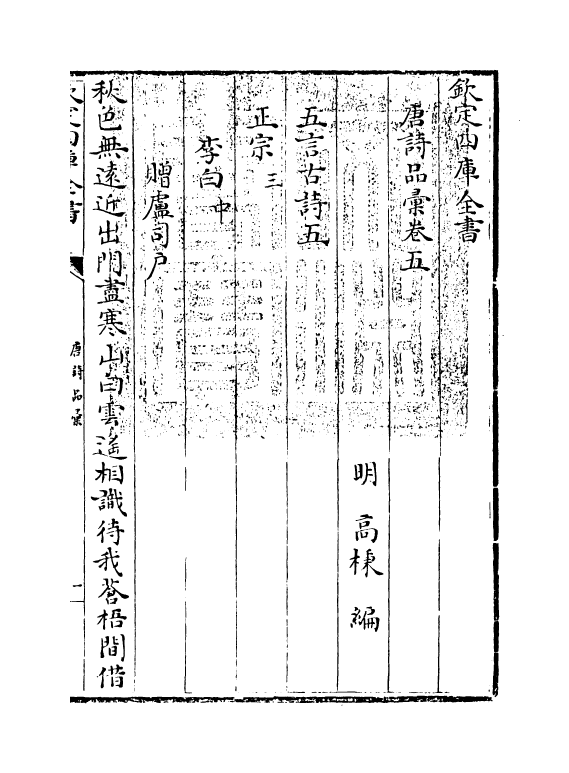 欽定四庫全書
唐詩品彙卷五
明 高棅 編
五言古詩五
正宗三
李白中
贈盧司戶
秋色無遠近出門盡寒山白雲遥相識待我蒼梧間借
欽定四庫全書
唐詩品彙
一